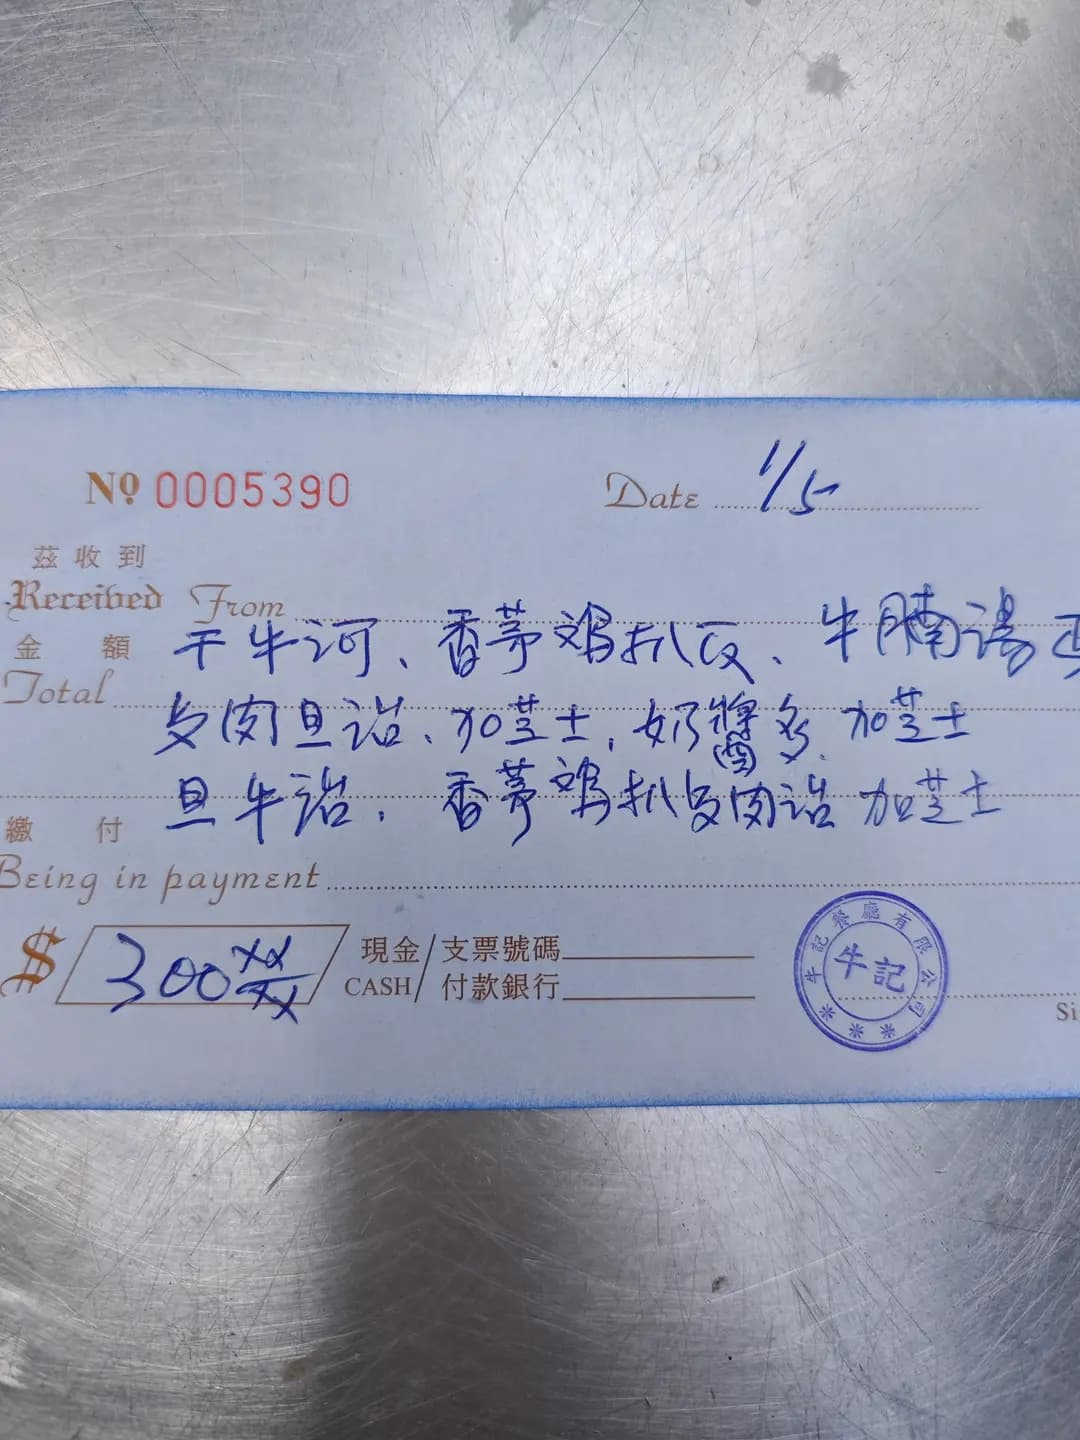 № 0005390 Date 1/5
茲收到
Received From
金額 干牛河、香茅鸡扒反、牛腩湯
Total
肉旦治、加芝士，奶醬多、加芝士
旦牛治、香茅鸡扒 肉治 加芝士
繳付
Being in payment
$ 300 現金 CASH / 支票號碼 付款銀行
牛記餐廳有限公司
牛記
Si